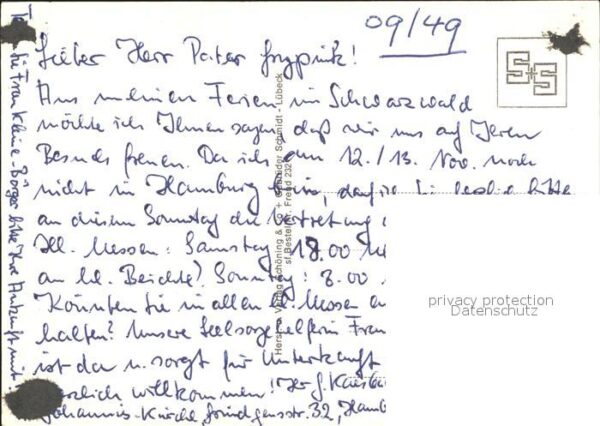 09/49
Lieber Herr Pater
Aus meinen Ferien im Schwarzwald
möchte ich Ihnen sagen, daß wir uns auf Ihren
Besuch freuen. Da ich am 12./13. Nov. noch
nicht in Hamburg bin, darf ich Sie herzlich bitte
an diesem Sonntag die Vertretung
Hl. Messen: Samstag 18.00
an hl. Beichte? Sonntag: 8.00
Könnten Sie in allen hl. Messen
halten? Unsere Seelsorgehelferin Frau
ist da u. sorgt für Unterkunft
herzlich willkommen! Ihr J.
Johannis-Kirche 32, Hamb
Sie Frau Kleine-Borger bitte Ihre Ankunft mit
S+S
Verlag Schöning & Co + Gebrüder Schmidt - Lübeck
privacy protection
Datenschutz